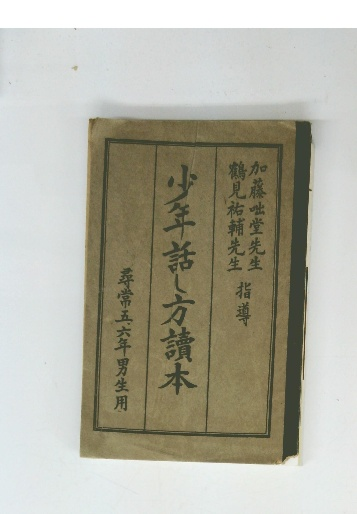 加藤咄堂先生
鶴見祐輔先生 指導
少年話し方讀本
尋常五、六年男生用